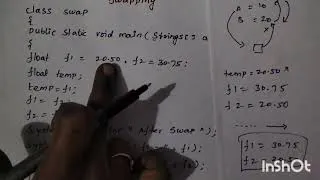 Swapping
class swap
{
public static void main(Strings[] a
{
float f1 = 20.50, f2 = 30.75;
float temp;
temp = f1;
f1 = f
f2 =
Syste
After swap
A = 10
B = 20
temp = 20.50
f1 = 30.75
f2 = 20.50
f1 = 30.75
f2 = 20.5
InShot